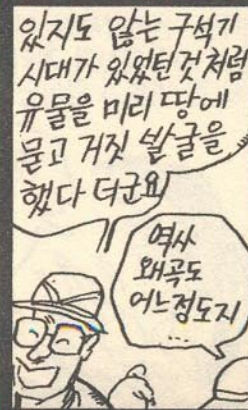 있지도 않는 구석기
시대가 있었던것처럼
유물을 미리 땅에
묻고 거짓 발굴을
했다 더군요
역사
왜곡도
어느정도지
...